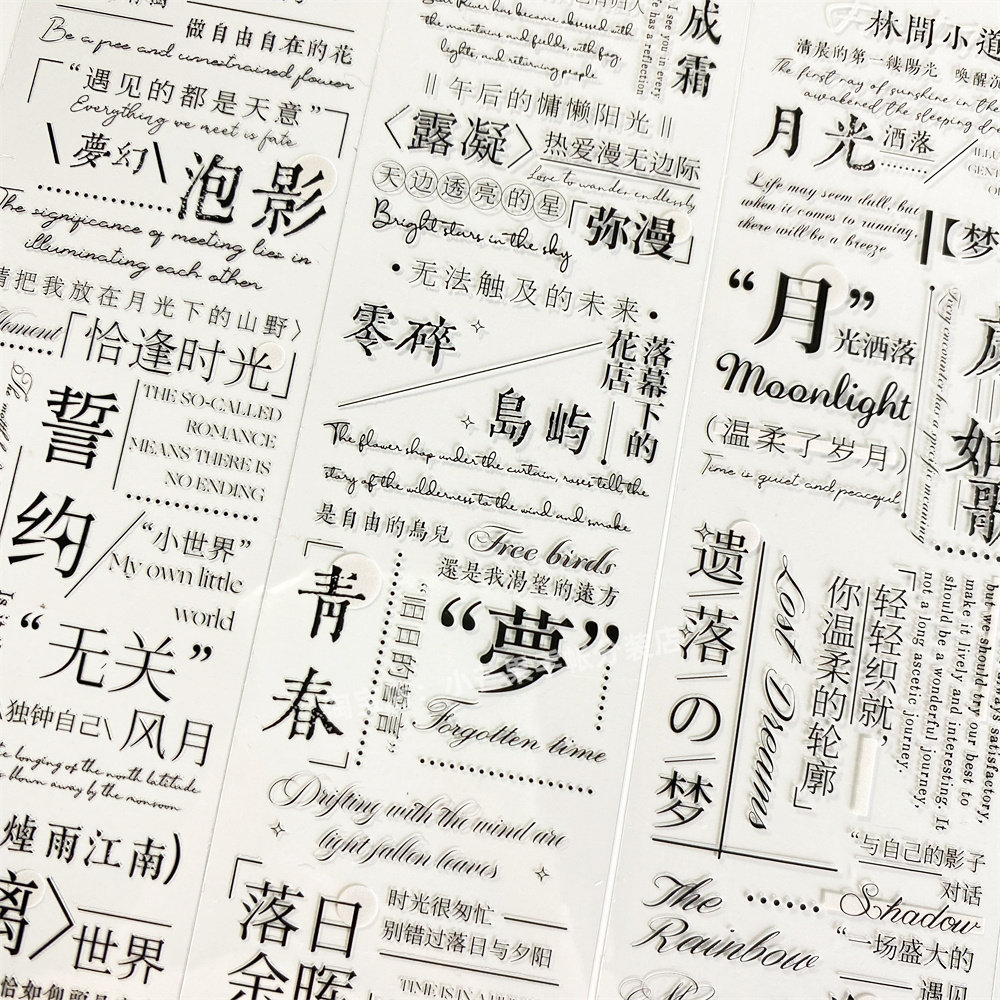 做自由自在的花
Be a free and unrestrained flower
“遇见的都是天意”
Everything we meet is fate
夢幻
泡影
The significance of meeting lies in
illuminating each other
请把我放在月光下的山野〉
Moment
「恰逢时光」
誓
约
THE SO-CALLED
ROMANCE
MEANS THERE IS
NO ENDING
“小世界”
My own little
world
“无关”
独钟自己
风月
longing of the north latitude
blown away by the monsoon
烟雨江南)
离〉
世界
has become obsessed with
the mountains and fields, with fog
lights, and returning people
I see you in every
has a reflection
成
霜
午后的慵懒阳光
〈露凝〉
热爱漫无边际
Love to wander endlessly
天边透亮的星
Bright stars in the sky
「弥漫」
•无法触及的未来•
零碎
島屿
落幕下的
花店
The flower shop under the curtain, roses tell the
story of the wilderness to the wind and smoke
是自由的鳥兒
Free birds
還是我渴望的遠方
「青
春」
“旧日的誓言”
“夢”
Forgotten time
Drifting with the wind are
light fallen leaves
「落日
余晖
时光很匆忙
别错过落日与夕阳
TIME IS IN A
林間小道
清晨的第一縷陽光 喚醒沉
The first ray of sunshine in the
awakened the sleeping
月光
洒落
Life may seem dull, but
when it comes to running,
there will be a breeze
【梦
“月”
光洒落
Moonlight
(温柔了岁月)
Time is quiet and peaceful
Every encounter has a specific meaning
如
歌
遗落の梦
Lost Dreams
「轻轻织就，
你温柔的轮廓」
always satisfactory,
but we should try our best to
make it lively and interesting. It
should be a wonderful journey,
not a long ascetic journey.
“与自己的影子
对话
Shadow
The
Rainbow
“一场盛大的
遇见